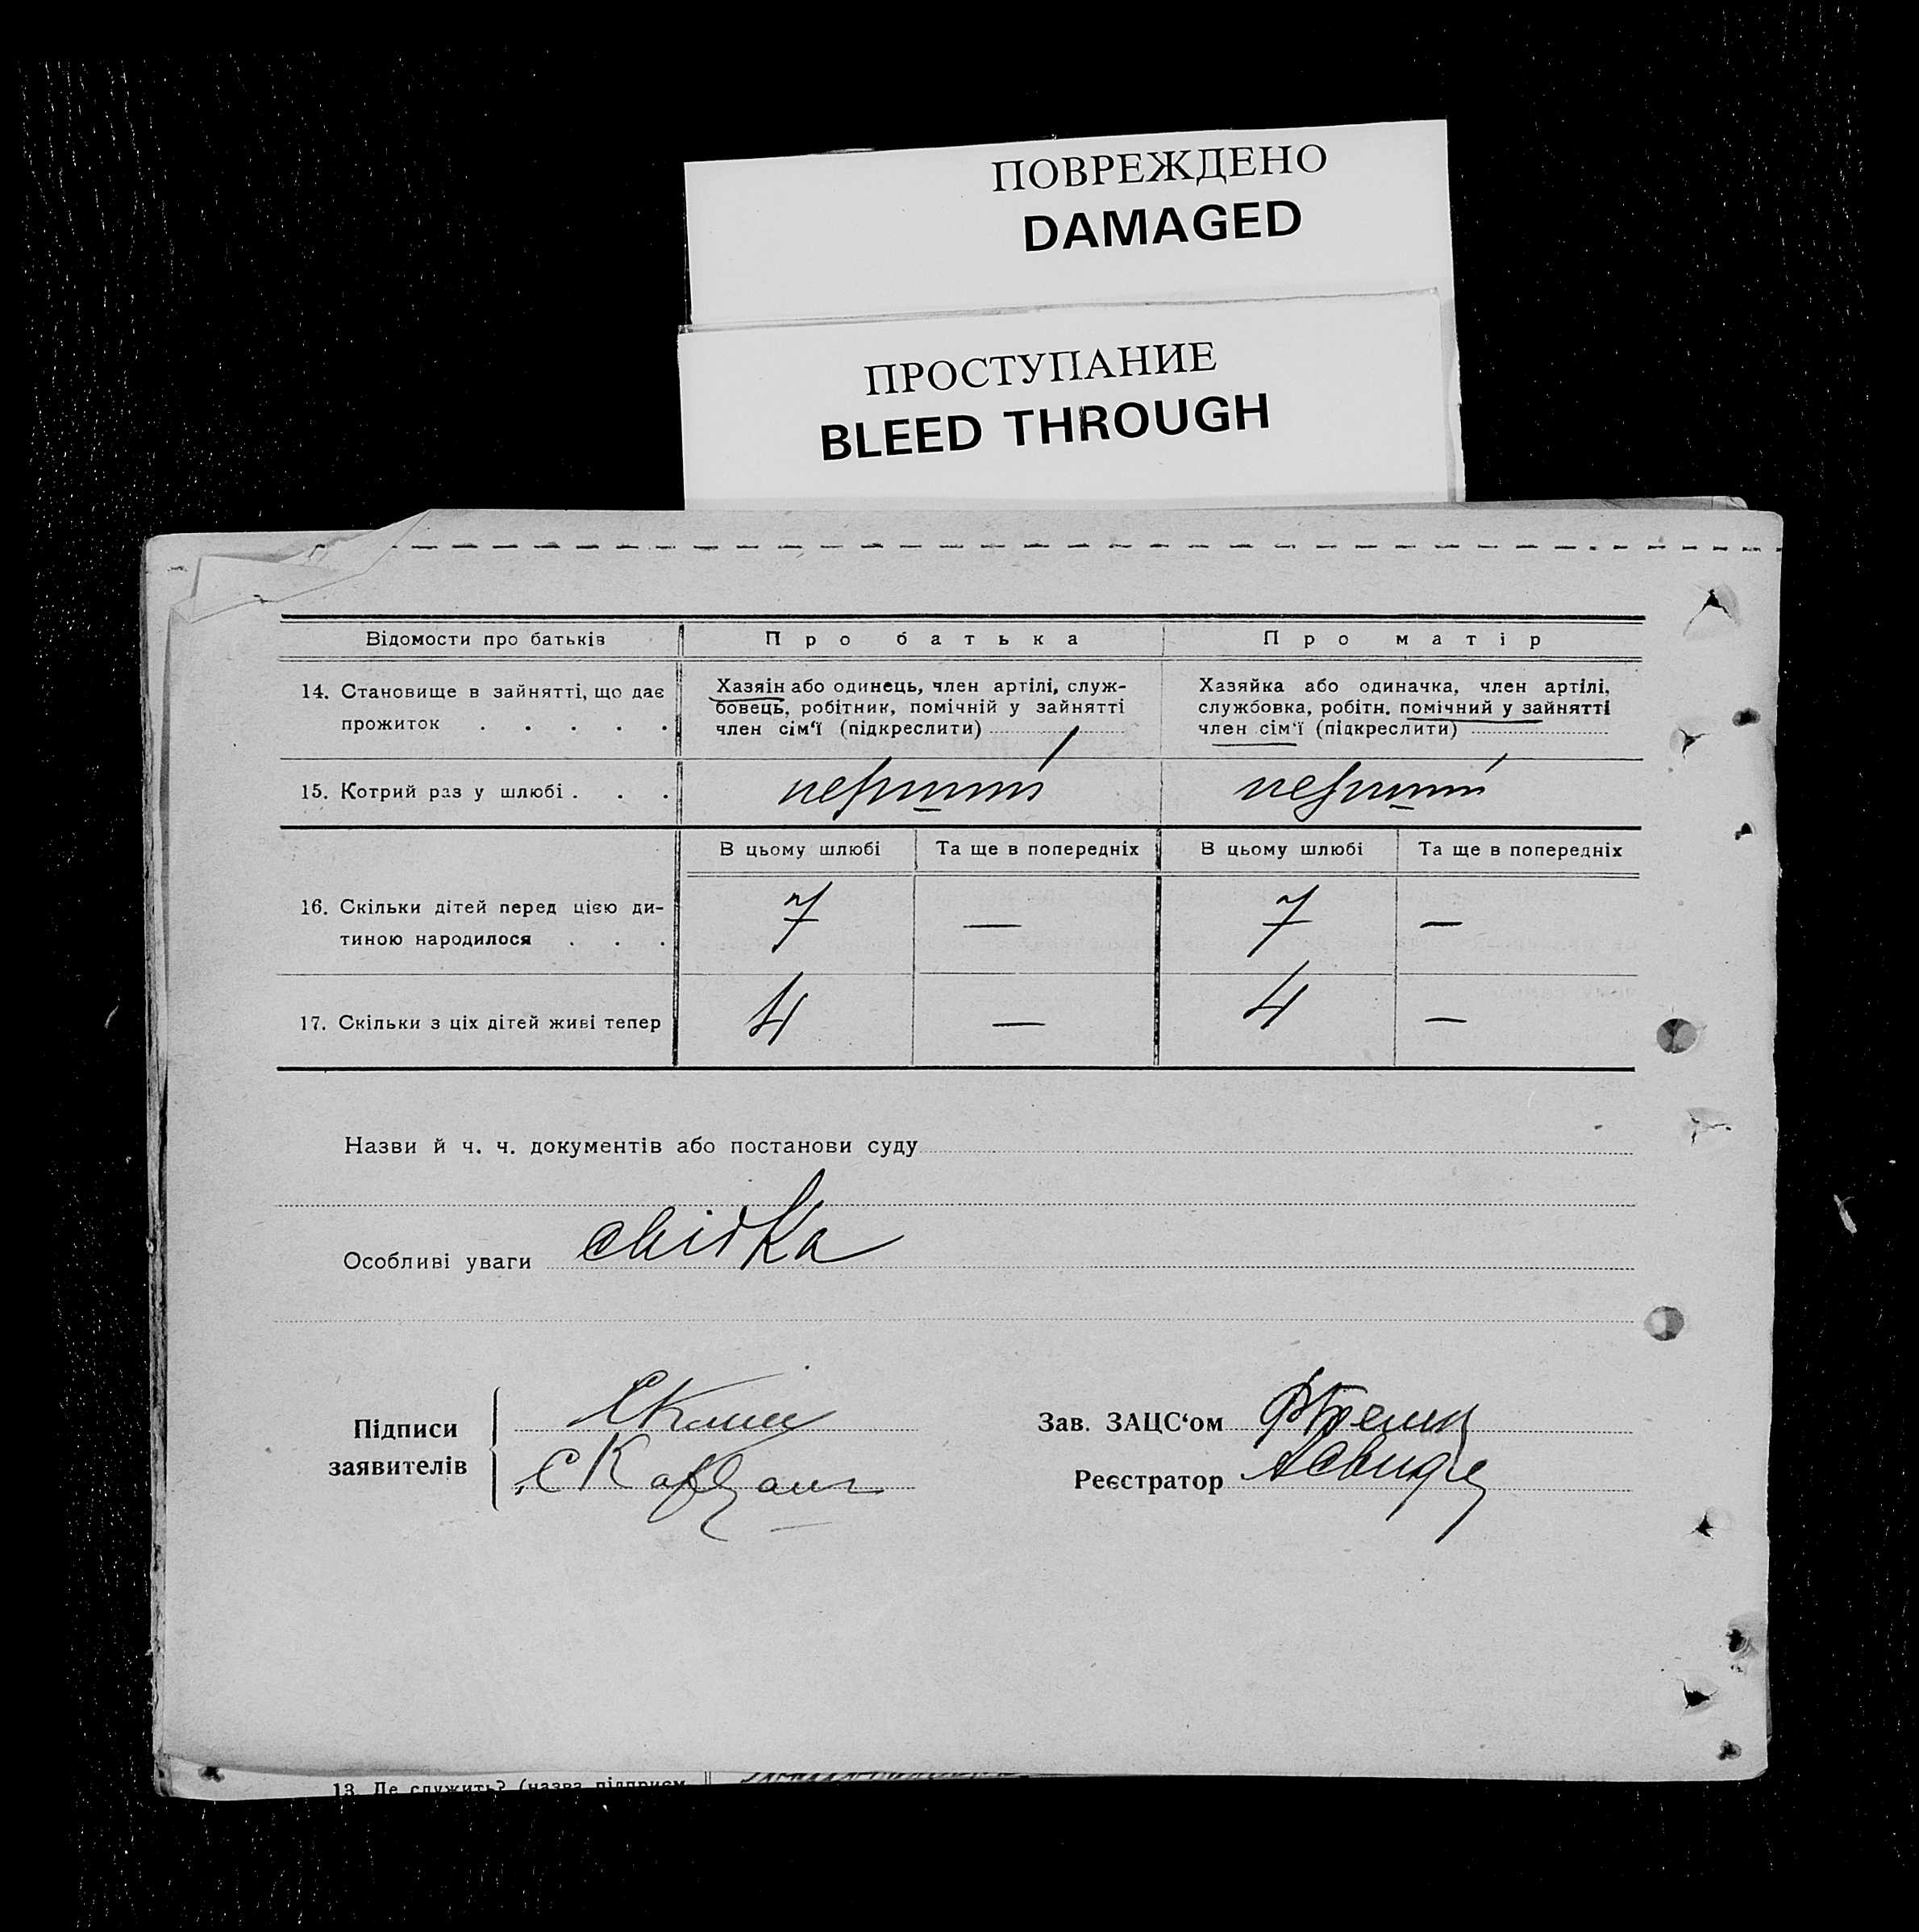 ПОВРЕЖДЕНО
DAMAGED
ПРОСТУПАНИЕ
BLEED THROUGH
Відомости про батьків | Про батька | Про матір
14. Становище в зайнятті, що дає прожиток . . . . .
Хазяін або одинець, член артілі, служ-
бовець, робітник, помічній у зайнятті
член сім‘ї (підкреслити)
Хазяйка або одиначка, член артілі,
службовка, робітн. помічний у зайнятті
член сім‘ї (підкреслити)
15. Котрий раз у шлюбі . . . | перший | перший
В цьому шлюбі | Та ще в попередніх | В цьому шлюбі | Та ще в попередніх
16. Скільки дітей перед цією ди-
тиною народилося . . . | 7 | — | 7 | —
17. Скільки з ціх дітей живі тепер | 4 | — | 4 | —
Назви й ч. ч. документів або постанови суду
Особливі уваги свідка
Підписи
заявителів
Зав. ЗАЦС‘ом
Реєстратор
13. Де служить? (назва підприєм